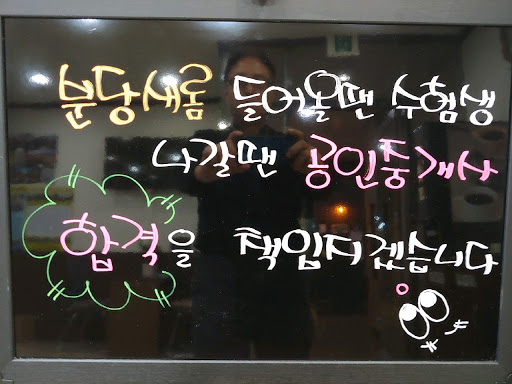 분당새롬 들어올땐 수험생
나갈땐 공인중개사
합격을 책임지겠습니다